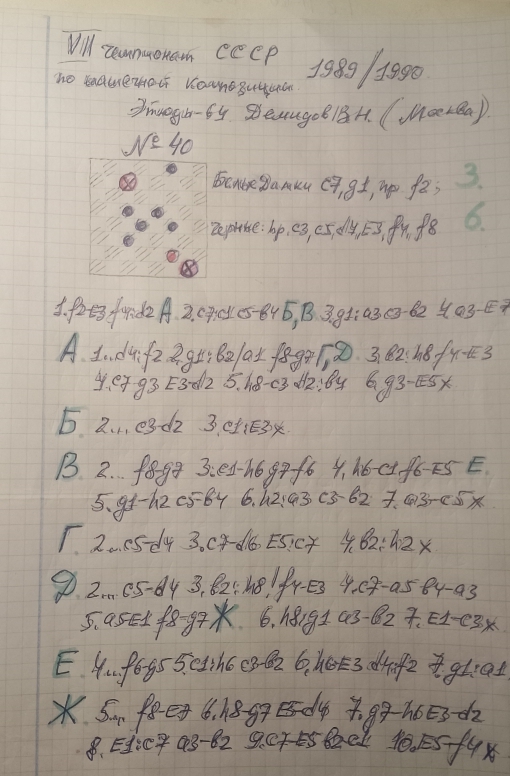 VIII чемпионат СССР
по шашечной композиции 1989/1990.
Этюды-64 Демидов В.Н. (Москва).
№ 40
Белые Дамки c7, g1, пр. f2; 3.
Черные: пр. c3, c5, d4, E3, f4, f8 6.
1. f2:E3 f4:d2 А 2. c7:c1 c5-b4 Б, В 3. g1:a3 c3-b2 4. a3-E7
А 1... d4:f2 2. g1:b2/a1 f8-g7 Г, Д 3. b2:h8 f4-E3
4. c7-g3 E3-d2 5. h8-c3 d2:b4 6. g3-E5x
Б 2... c3-d2 3. c1:E3x.
В 2... f8-g7 3. c1-h6 g7-f6 4. h6-c1 f6-E5 Е.
5. g1-h2 c5-b4 6. h2:a3 c3-b2 7. a3-c5x
Г 2... c5-d4 3. c7-d6 E5:c7 4. b2:h2x
Д 2... c5-d4 3. b2:h8! f4-E3 4. c7-a5 b4-a3
5. a5E1 f8-g7 Ж. 6. h8:g1 a3-b2 7. E1-c3x.
Е 4... f6-g5 5. c1:h6 c3-b2 6. h6-E3 d4:f2 7. g1:a1
Ж 5... f8-E7 6. h8-g7 E5-d4 7. g7-h6 E3-d2
8. E1:c7 a3-b2 9. c7-E5 b2c1 10. E5-f4x